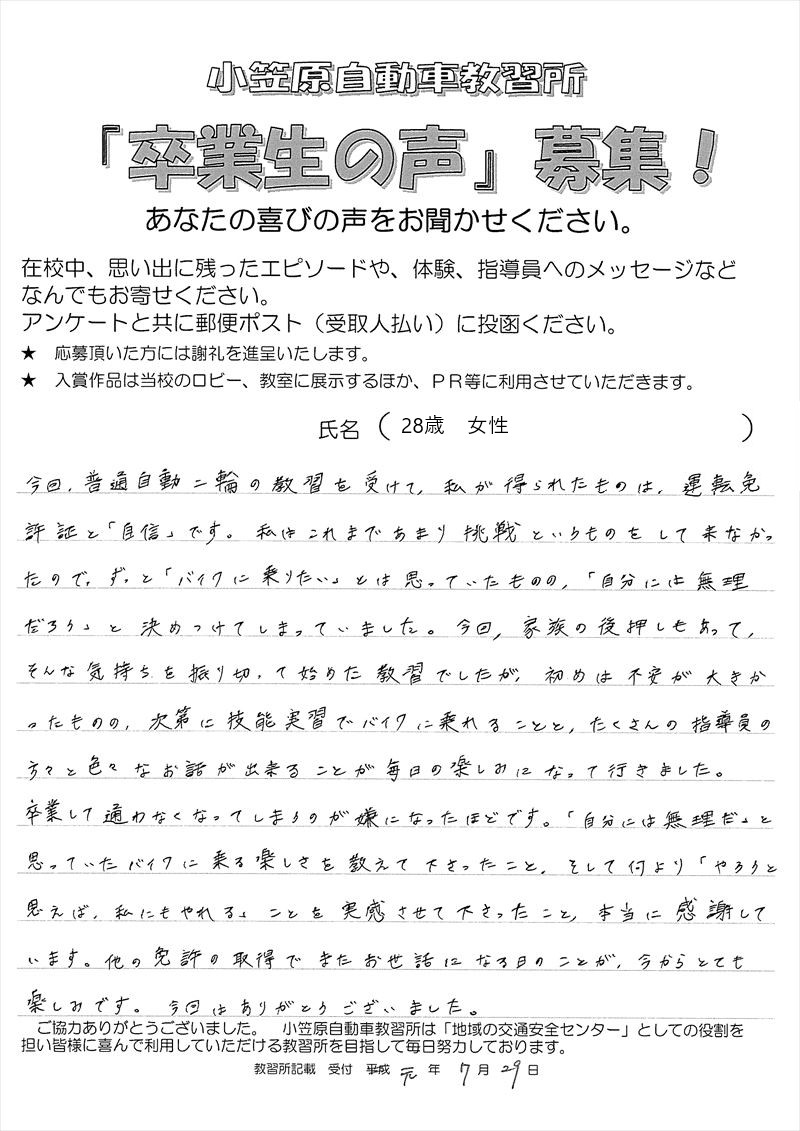 小笠原自動車教習所
「卒業生の声」募集！
あなたの喜びの声をお聞かせください。
在校中、思い出に残ったエピソードや、体験、指導員へのメッセージなど
なんでもお寄せください。
アンケートと共に郵便ポスト（受取人払い）に投函ください。
★　応募頂いた方には謝礼を進呈いたします。
★　入賞作品は当校のロビー、教室に展示するほか、ＰＲ等に利用させていただきます。
氏名（ 28歳　女性 ）
今回、普通自動二輪の教習を受けて、私が得られたものは、運転免
許証と「自信」です。私はこれまであまり挑戦というものをして来なかっ
たので、ずっと「バイクに乗りたい」とは思っていたものの、「自分には無理
だろう」と決めつけてしまっていました。今回、家族の後押しもあって、
そんな気持ちを振り切って始めた教習でしたが、初めは不安が大きか
ったものの、次第に技能実習でバイクに乗れることと、たくさんの指導員の
方々と色々なお話が出来ることが毎日の楽しみになって行きました。
卒業して通わなくなってしまうのが嫌になったほどです。「自分には無理だ」と
思っていたバイクに乗る楽しさを教えて下さったこと、そして何より「やろうと
思えば、私にもやれる」ことを実感させて下さったこと、本当に感謝して
います。他の免許の取得でまたお世話になる日のことが、今からとても
楽しみです。今回はありがとうございました。
ご協力ありがとうございました。　小笠原自動車教習所は「地域の交通安全センター」としての役割を
担い皆様に喜んで利用していただける教習所を目指して毎日努力しております。
教習所記載　受付　平成 元 年 7 月 29 日